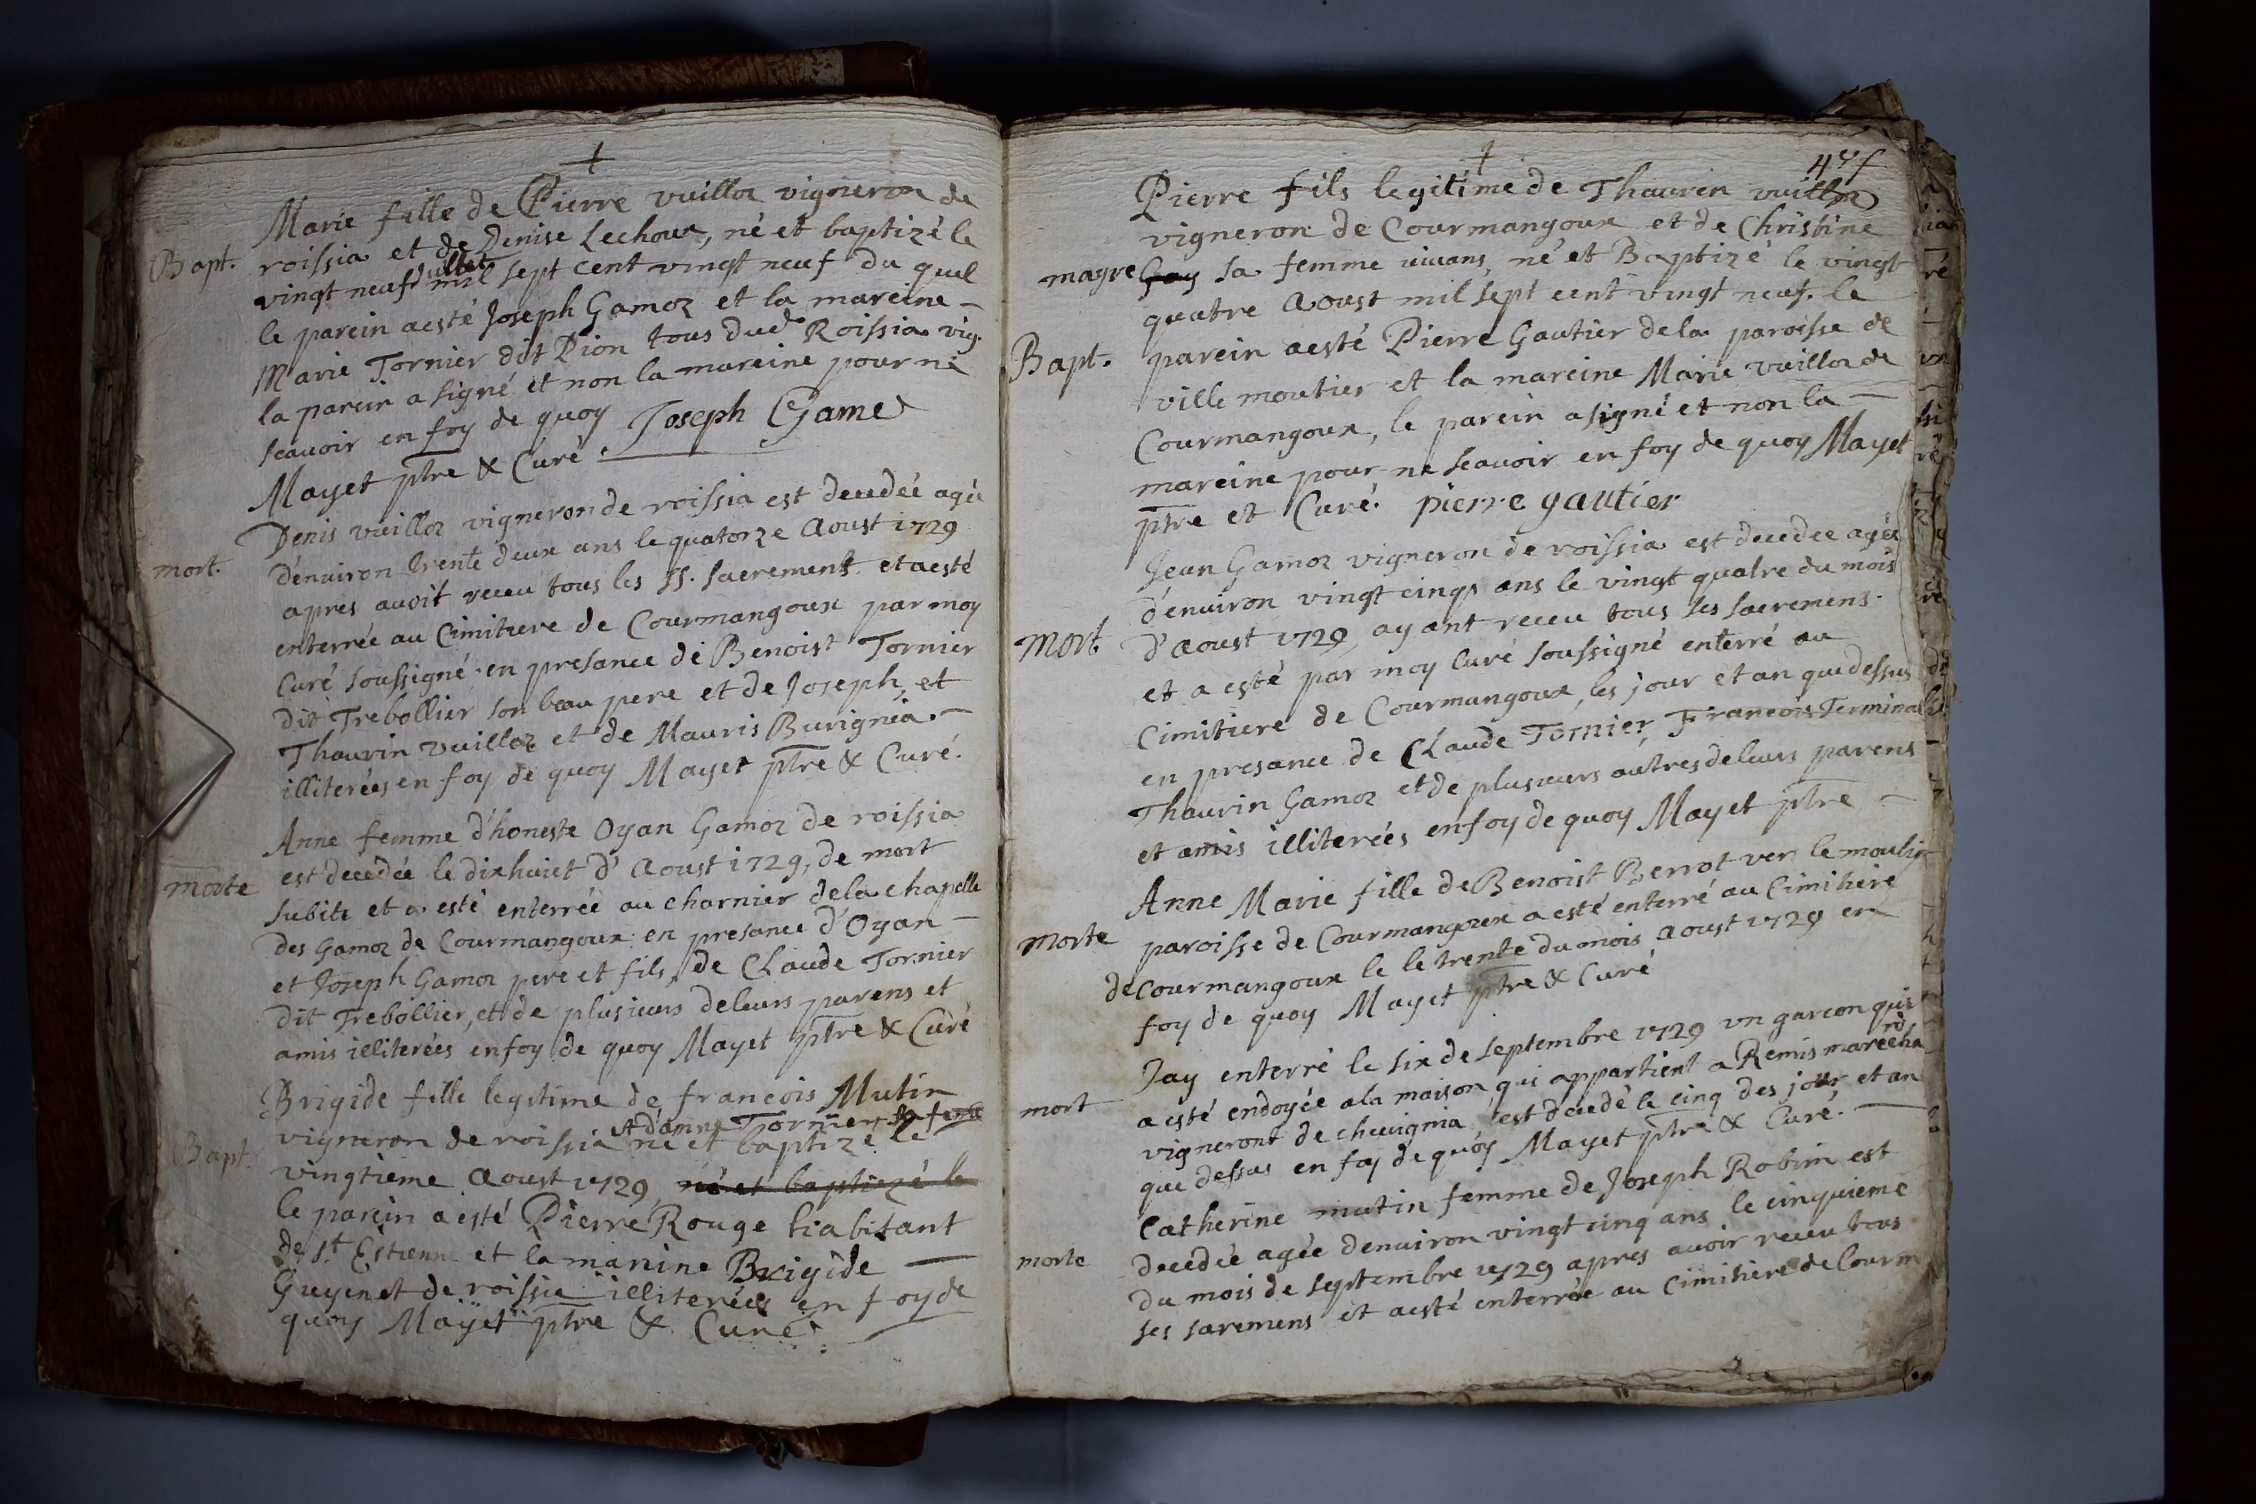 +
Marie fille de Pierre vuilloz vigneron de
Bapt. roissia et de Denise Lechoux, né et baptizé le
vingt neuf juillet mil sept cent vingt neuf du quel
le parein aesté Joseph Gamoz et la mareine –
Marie Tornier dit Dion tous dud. Roissia vig.
la parein a signé et non la mareine pour ne
scavoir en foy de quoy Joseph Game
Mayet ptre & Curé.
Denis vuilloz vigneron de roissia est decedée agée
mort. d'enuiron trente deux ans le quatorze Aoust 1729
apres avoit receu tous les SS. sacrements et aesté
enterrée au Cimitiere de Courmangoux par moy
Curé soussigné en presance de Benoist Tornier
dit Trebollier son beau pere et de Joseph, et
Thaurin vuilloz et de Mauris Burignia. –
illiterées en foy de quoy Mayet ptre & Curé.
Anne femme d'honeste Oyan Gamoz de roissia
morte est decedée le dixhuict d'Aoust 1729, de mort
subite et a esté enterrée au charnier de la chapelle
des Gamoz de Courmangoux en presance d'Oyan –
et Joseph Gamoz pere et fils, de Claude Tornier
dit Trebollier, et de plusieurs de leurs parens et
amis illiterées en foy de quoy Mayet ptre & Curé
Brigide fille legitime de francois Mutin
et d'anne Tornier sa femme
Bapt. vigneron de roissia né et baptizé le
vingtieme Aoust 1729, né et baptizé le
le parein a esté Pierre Rouge habitant
de st. Estienne et la marine Brigide —
Guyenet de roissia illiterées en foy de
quoy Mayet ptre & Curé.
+
Pierre fils legitime de Thaurin vuilloz
vigneron de Courmangoux et de Christine
magre Gay sa femme vivans, né et Baptizé le vingt
quatre Aoust mil sept cent vingt neuf. le
Bapt. parein aesté Pierre Gautier de la paroisse de
ville moutier et la mareine Marie vuilloz de
Courmangoux, le parein a signé et non la —
mareine pour ne scavoir en foy de quoy Mayet
ptre et Curé. pierre gautier
Jean Gamoz vigneron de roissia est decedee agée
d'enuiron vingt cinq ans le vingt quatre du mois
Mort d'Aoust 1729, ayant receu tous ses sacremens.
et a esté par moy Curé soussigné enterré au
Cimitiere de Courmangoux, les jour et an que dessus
en presance de Claude Tornier, Francois Terminal
Thaurin Gamoz et de plusieurs autres de leurs parens
et amis illiterées en foy de quoy Mayet ptre –
Anne Marie fille de Benoist Berrot vers le moulin
morte paroisse de Courmangoux a esté enterré au Cimitiere
de Courmangoux le le trente du mois aoust 1729 en
foy de quoy Mayet ptre & Curé
Jay enterré le six de septembre 1729 vn garcon qui
mort a esté endoyée a la maison, qui appartient a Remis marecha
vigneront de chevignia, est decedé le cinq des jour et an
que dessus en foy de quoy Mayet ptre & Curé. —
Catherine mutin femme de Joseph Robin est
morte decedée agée denuiron vingt cinq ans le cinquieme
du mois de septembre 1729 apres avoir receu tous
ses saremens et aesté enterrée au Cimitiere de Courm